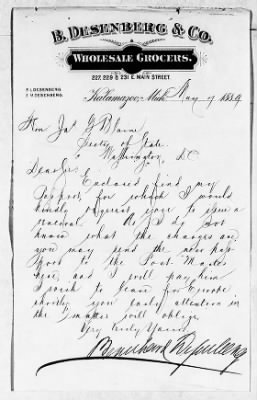 B. DESENBERG & CO.
WHOLESALE GROCERS.
227, 229 & 231 E. MAIN STREET.
B. L. DESENBERG.
Kalamazoo, Mich. May 17 1889
Hon Jas G Blaine
Secty of State
Washington, D C
Dear Sir: Enclosed find my
passport, for which I would
kindly request you to issue a
renewal. As I do not
know what the charges are
you may send the new pass
port to the Post Master
here and I will pay him
I wish to leave for Europe
shortly you early attention in
the matter will oblige.
Very Truly Yours
Bernhard Desenberg